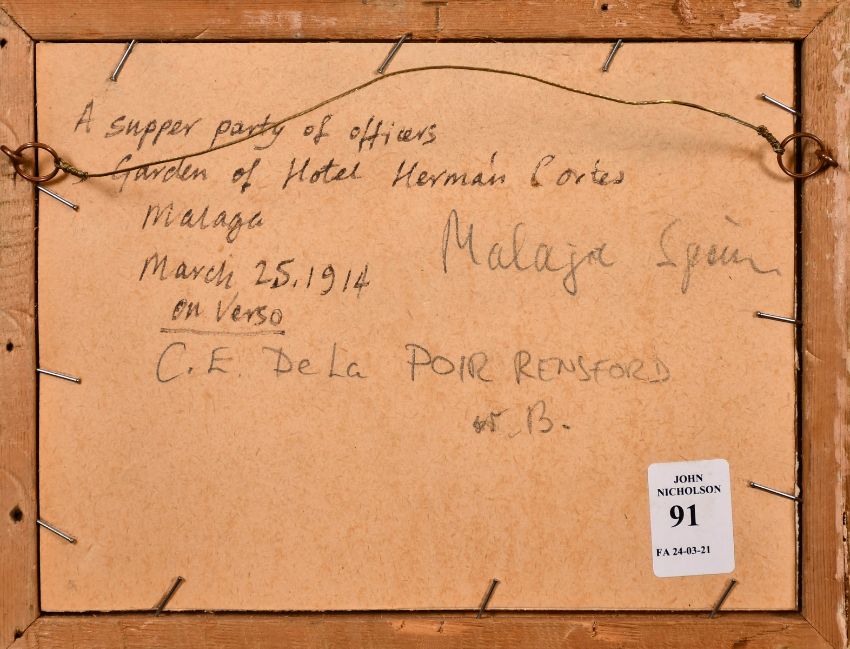 A supper party of officers
Garden of Hotel Hermán Cortes
Malaga
March 25. 1914
on Verso
Malaga Spain
C. E. De La POIR RENSFORD
B.
JOHN
NICHOLSON
91
FA 24-03-21